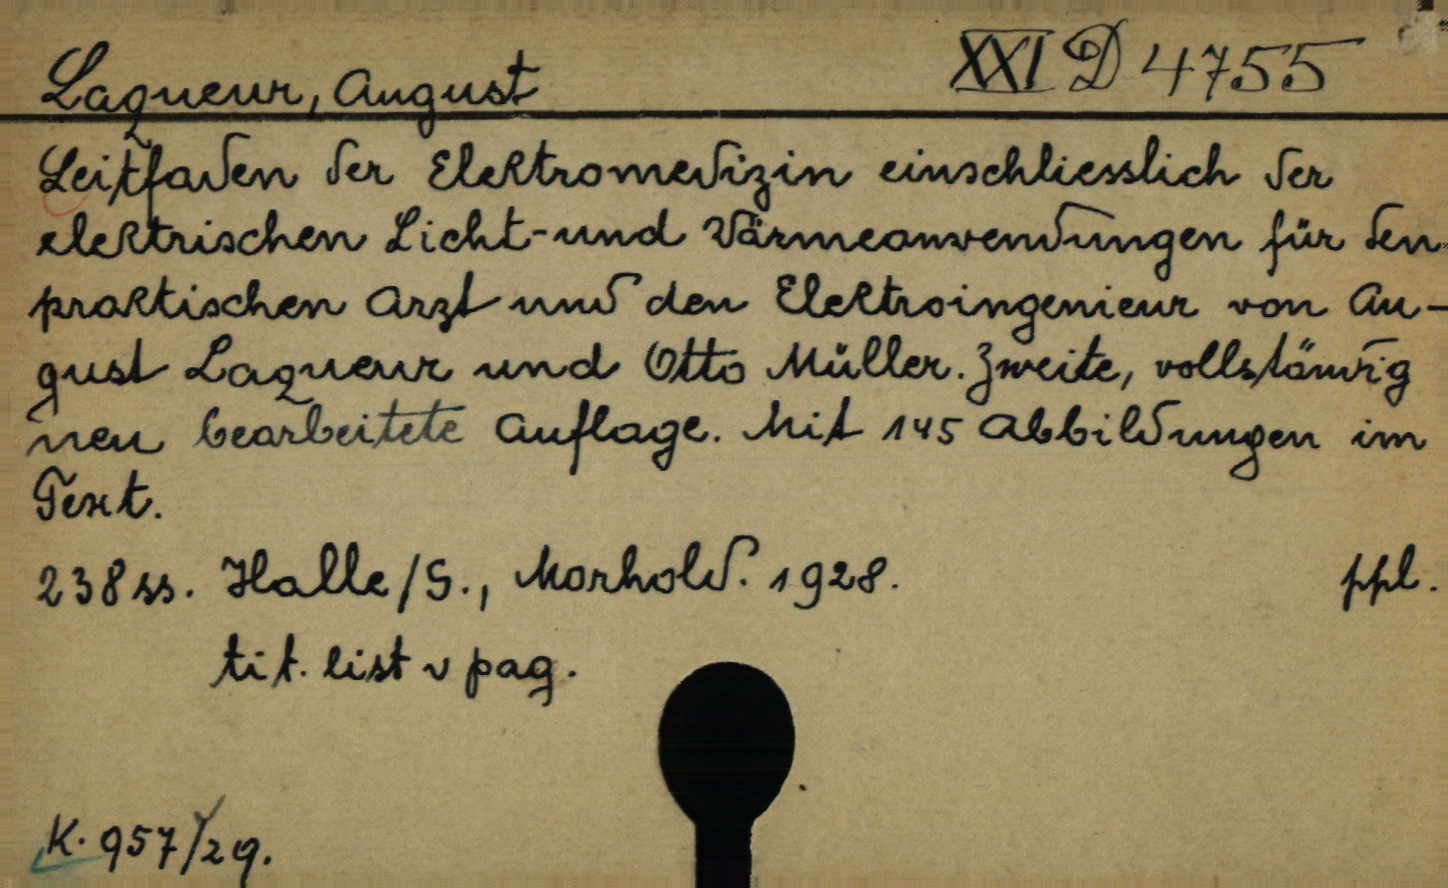 Laqueur, August XXI D 4755
Leitfaden der Elektromedizin einschliesslich der
elektrischen Licht- und Wärmeanwendungen für den
praktischen Arzt und den Elektroingenieur von Au-
gust Laqueur und Otto Müller. Zweite, vollständig
neu bearbeitete Auflage. Mit 145 Abbildungen im
Text.
238 ss. Halle/S., Marhold. 1928. ppl.
tit. list v pag.
K. 957/29.